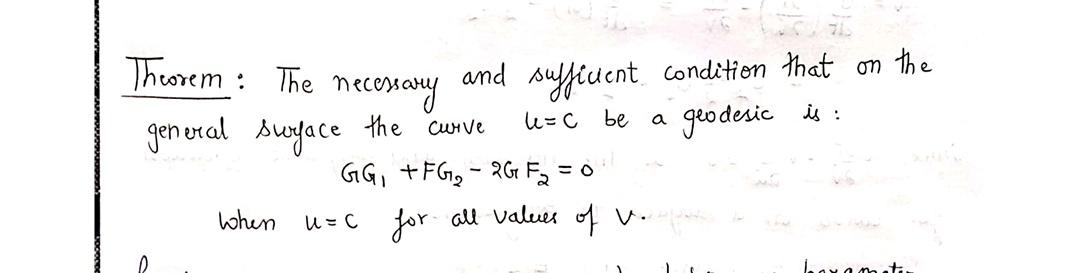 Theorem : The necessary and sufficient condition that on the
general surface the curve u=c be a geodesic is :
GG₁ + FG₂ - 2GF₂ = 0
When u=c for all values of v.